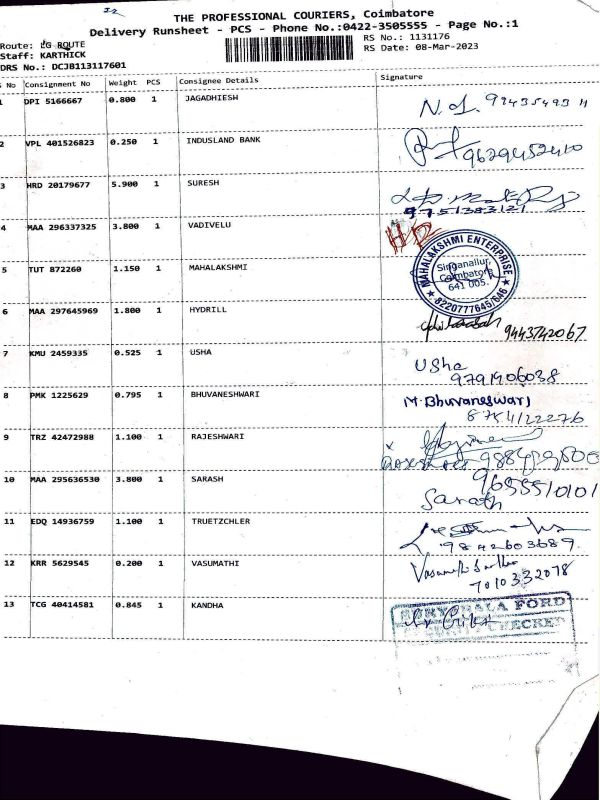 THE PROFESSIONAL COURIERS, Coimbatore
Delivery Runsheet - PCS - Phone No.:0422-3505555 - Page No.:1
Route: LG ROUTE
Staff: KARTHICK
DRS No.: DCJB113117601
RS No.: 1131176
RS Date: 08-Mar-2023
S No Consignment No Weight PCS Consignee Details Signature
1 DPI 5166667 0.800 1 JAGADHIESH
2 VPL 401526823 0.250 1 INDUSLAND BANK 9629452410
3 HRD 20179677 5.900 1 SURESH 9751383121
4 MAA 296337325 3.800 1 VADIVELU
5 TUT 872260 1.150 1 MAHALAKSHMI
MAHALAKSHMI ENTERPRISE
Singanallur,
Coimbatore
641 005.
6 MAA 297645969 1.800 1 HYDRILL 9443742067
7 KMU 2459335 0.525 1 USHA Usha
9791906038
8 PMK 1225629 0.795 1 BHUVANESHWARI M. Bhuvaneswari
8754122276
9 TRZ 42472988 1.100 1 RAJESHWARI
10 MAA 295636530 3.800 1 SARASH 9655510101
Sarath
11 EDQ 14936759 1.100 1 TRUETZCHLER
9842603689.
12 KRR 5629545 0.200 1 VASUMATHI
7010332078
13 TCG 40414581 0.845 1 KANDHA
FORD